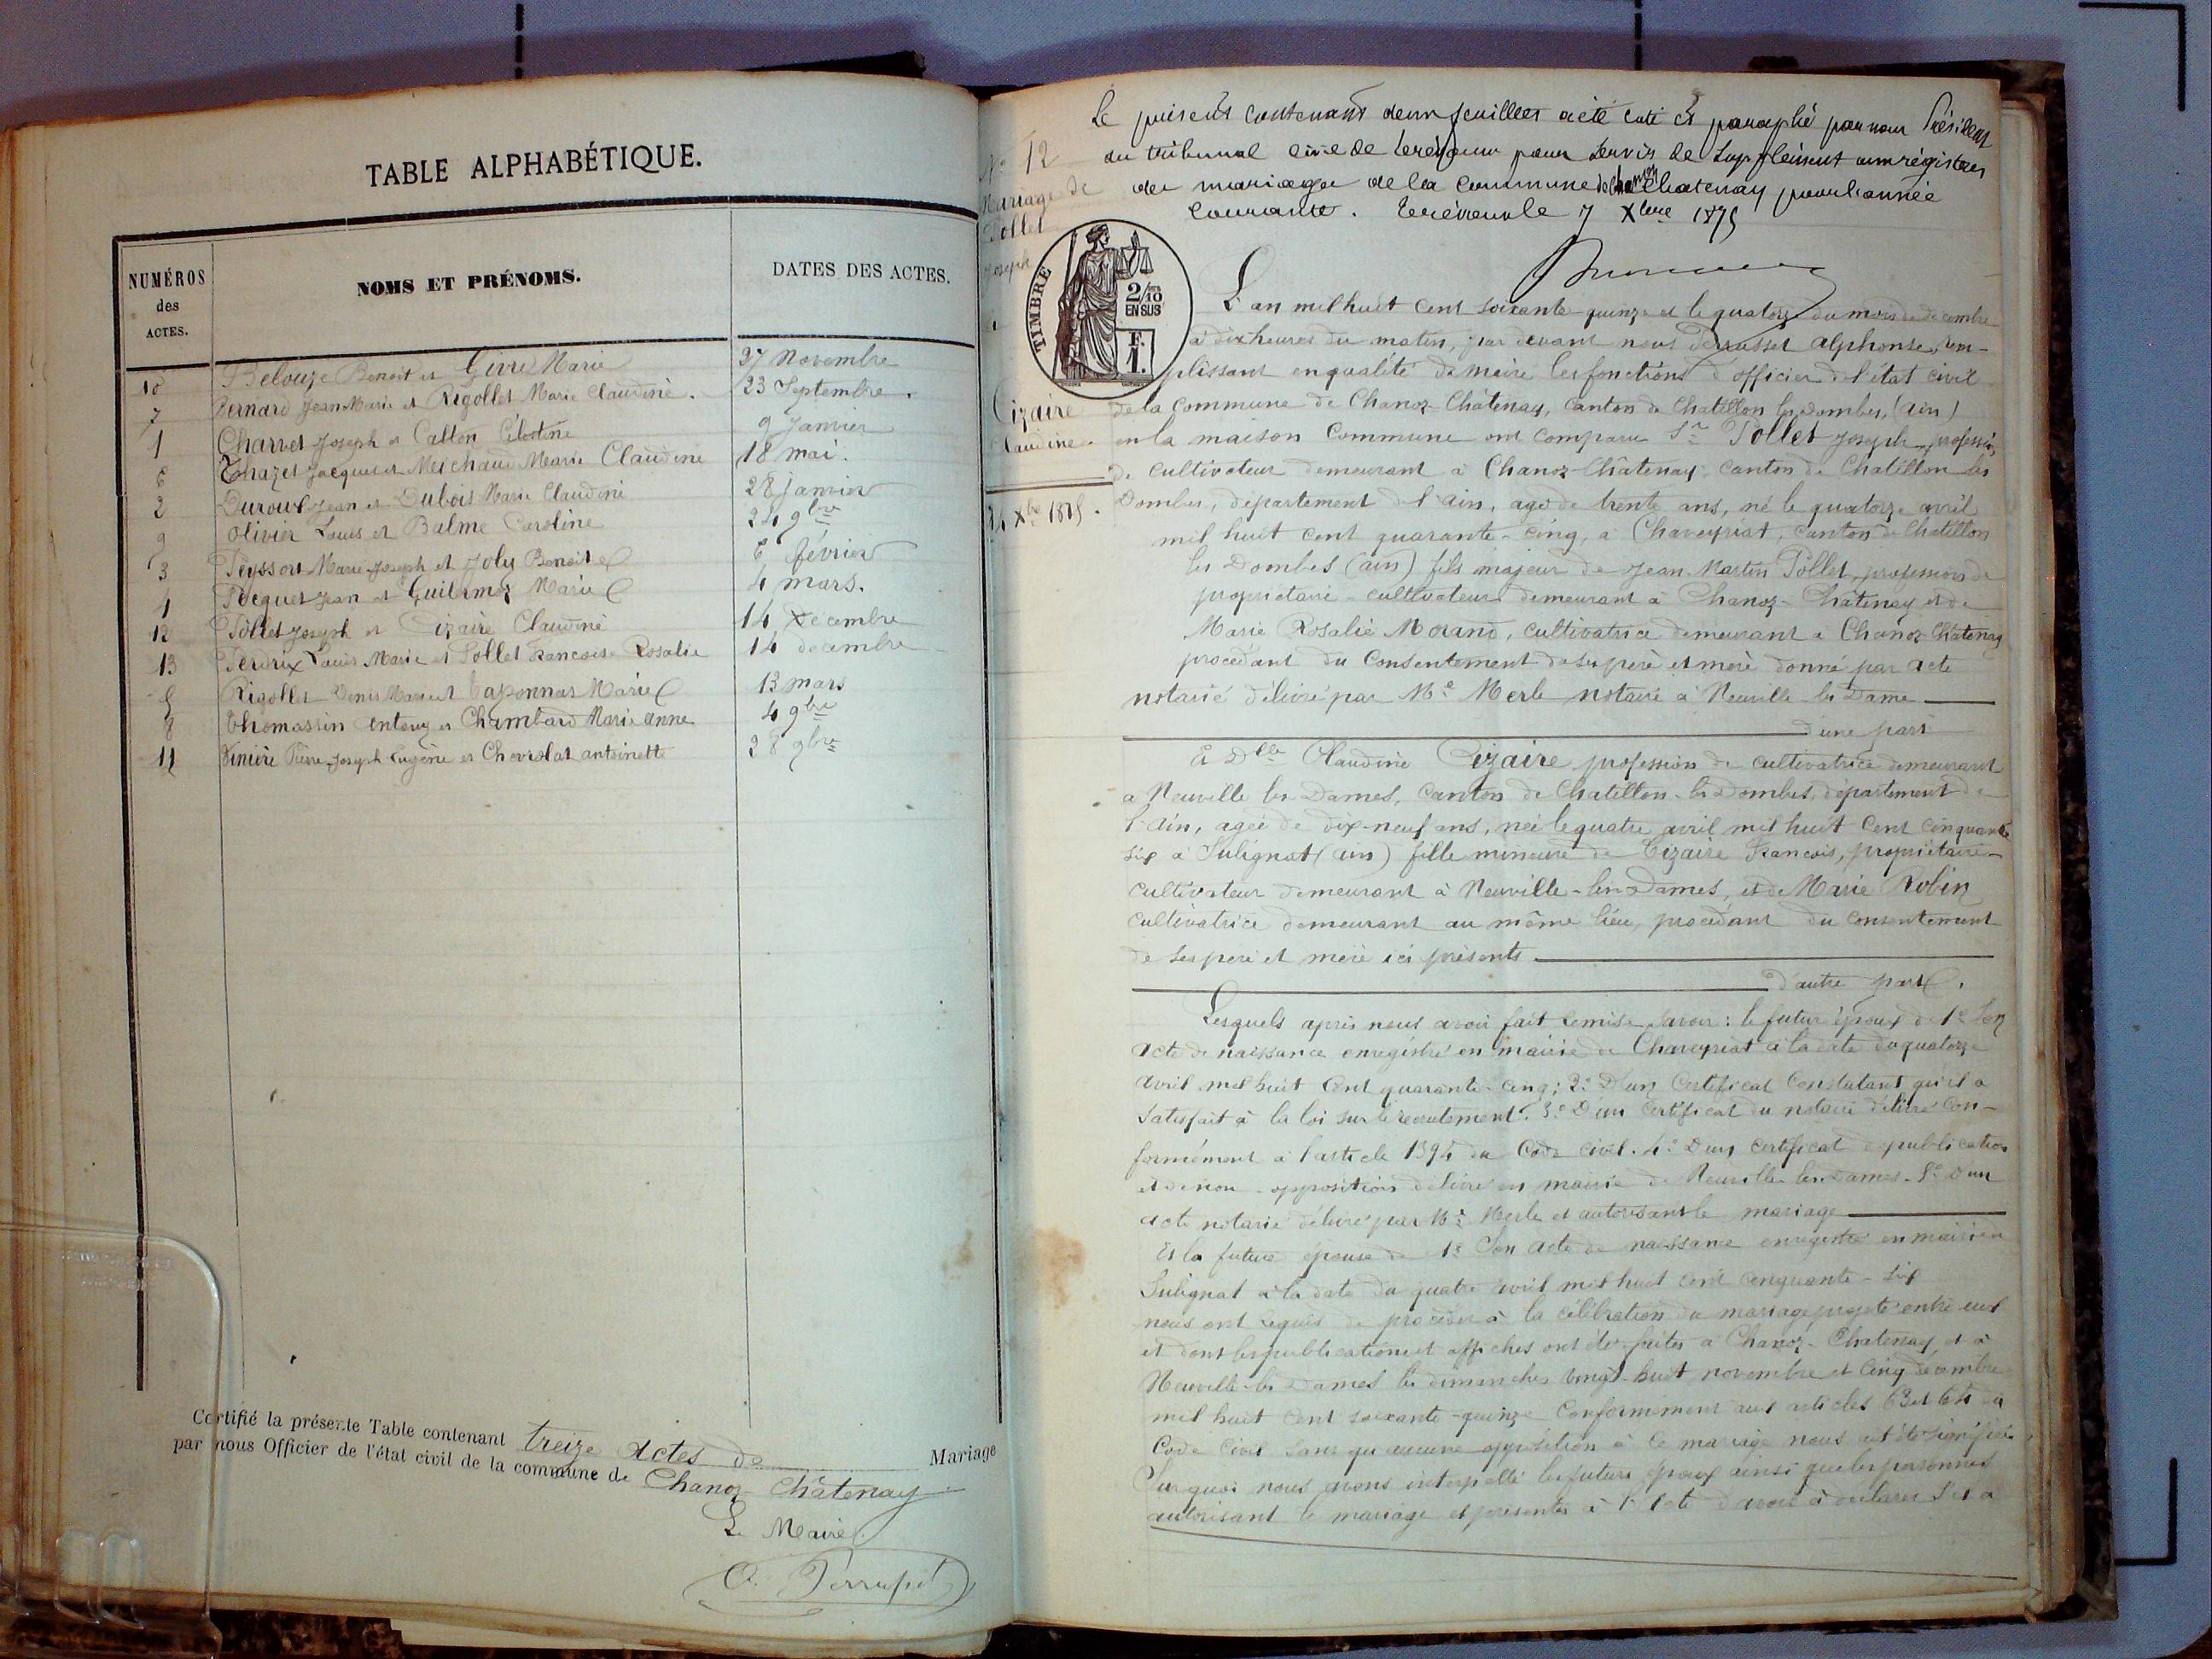 TABLE ALPHABÉTIQUE.
NUMÉROS
des
ACTES.
NOMS ET PRÉNOMS.
DATES DES ACTES.
10 Belouze Benoit et Givre Marie 27 Novembre
7 Bernard Jean Marie et Rigollet Marie Claudine. 23 Septembre.
1 Charvet Joseph et Catton Célestine 9 Janvier
6 Chazet Jacques et Meichaud Marie Claudine 18 mai.
2 Duroux Jean et Dubois Marie Claudine 28 janvier
9 Olivier Louis et Balme Caroline 24 9bre
3 Teyssort Marie Joseph et Joly Benoite 6 février
4 Pocquet Jean et Guillemoz Marie 4 mars.
12 Pollet Joseph et Cizaire Claudine 14 Décembre
13 Perdrix Louis Marie et Pollet Francoise Rosalie 14 décembre
5 Rigollet Denis Marie et Taponnas Marie 13 mars
8 Thomassin Antony et Chambard Marie Anne 4 9bre
11 Vinière Pierre Joseph Eugène et Chevrolat antoinette 28 9bre
Certifié la présente Table contenant treize Actes de Mariage
par nous Officier de l'état civil de la commune de Chanoz-Châtenay
Le Maire
No 12
Mariage de
Pollet
Joseph
Cizaire
Claudine
14 Xbre 1875.
Le présent contenant deux feuilles a été coté et paraphé par nous Président
du tribunal civil de Trévoux pour servir de Supplément aux régistres
des mariages de la Commune de Chanoz Chatenay pour l'année
Courante. Trévoux le 7 Xbre 1875
TIMBRE
2/10
EN SUS
F.
1.
L'an mil huit cent soixante-quinze et le quatorze du mois de décembre
à dix heures du matin, par devant nous Alphonse, rem-
plissant en qualité de maire les fonctions d'officier de l'état civil
de la Commune de Chanoz-Châtenay, canton de Chatillon les Dombes, (Ain)
en la maison Commune ont comparu Sr Pollet Joseph, profession
de cultivateur demeurant à Chanoz-Châtenay canton de Chatillon les
Dombes, département de l'Ain, agé de trente ans, né le quatorze avril
mil huit cent quarante-cinq, à Chaveyriat, canton de Chatillon
les Dombes (ain) fils majeur de Jean Martin Pollet, profession de
propriétaire-cultivateur demeurant à Chanoz-Châtenay et de
Marie Rosalie Morand, cultivatrice demeurant à Chanoz-Châtenay
procédant du Consentement de ses père et mère donné par acte
notarié délivré par Me Merle notaire à Neuville les Dame
d'une part
Et Dlle Claudine Cizaire profession de cultivatrice demeurant
à Neuville les Dames, canton de Chatillon-les Dombes, département de
l'Ain, agée de dix-neuf ans, née le quatre avril mil huit cent cinquante
six à Sulignat (ain) fille mineure de Cizaire Francois, propriétaire-
cultivateur demeurant à Neuville-les-Dames, et de Marie Robin
cultivatrice demeurant au même lieu, procédant du consentement
de ses père et mère ici présents
d'autre part.
Lesquels après nous avoir fait remise savoir: le futur époux de 1o Son
acte de naissance enregistré en mairie de Chaveyriat à la date du quatorze
avril mil huit cent quarante-cinq; 2o D'un Certificat Constatant qu'il a
satisfait à la loi sur le recrutement. 3o D'un certificat du notaire délivré con-
formément à l'article 1394 du Code civil. 4o D'un certificat de publication
et de non-opposition délivré en mairie de Neuville les Dames. 5o D'un
acte notarié délivré par Me Merle et autorisant le mariage
Et la future épouse de 1o Son acte de naissance enregistré en mairie de
Sulignat à la date du quatre avril mil huit cent cinquante-six
nous ont requis de procéder à la célébration du mariage projeté entre eux
et dont les publications et affiches ont été faites à Chanoz-Chatenay et à
Neuville-les Dames les dimanches vingt-huit novembre et cinq décembre
mil huit cent soixante-quinze Conformément aux articles 63 et 64 du
Code Civil sans qu'aucune opposition à ce mariage nous ait été signifiée
Sur quoi nous avons interpellé les futurs époux ainsi que les personnes
autorisant le mariage et présentes à l'acte d'avoir à déclarer s'il a